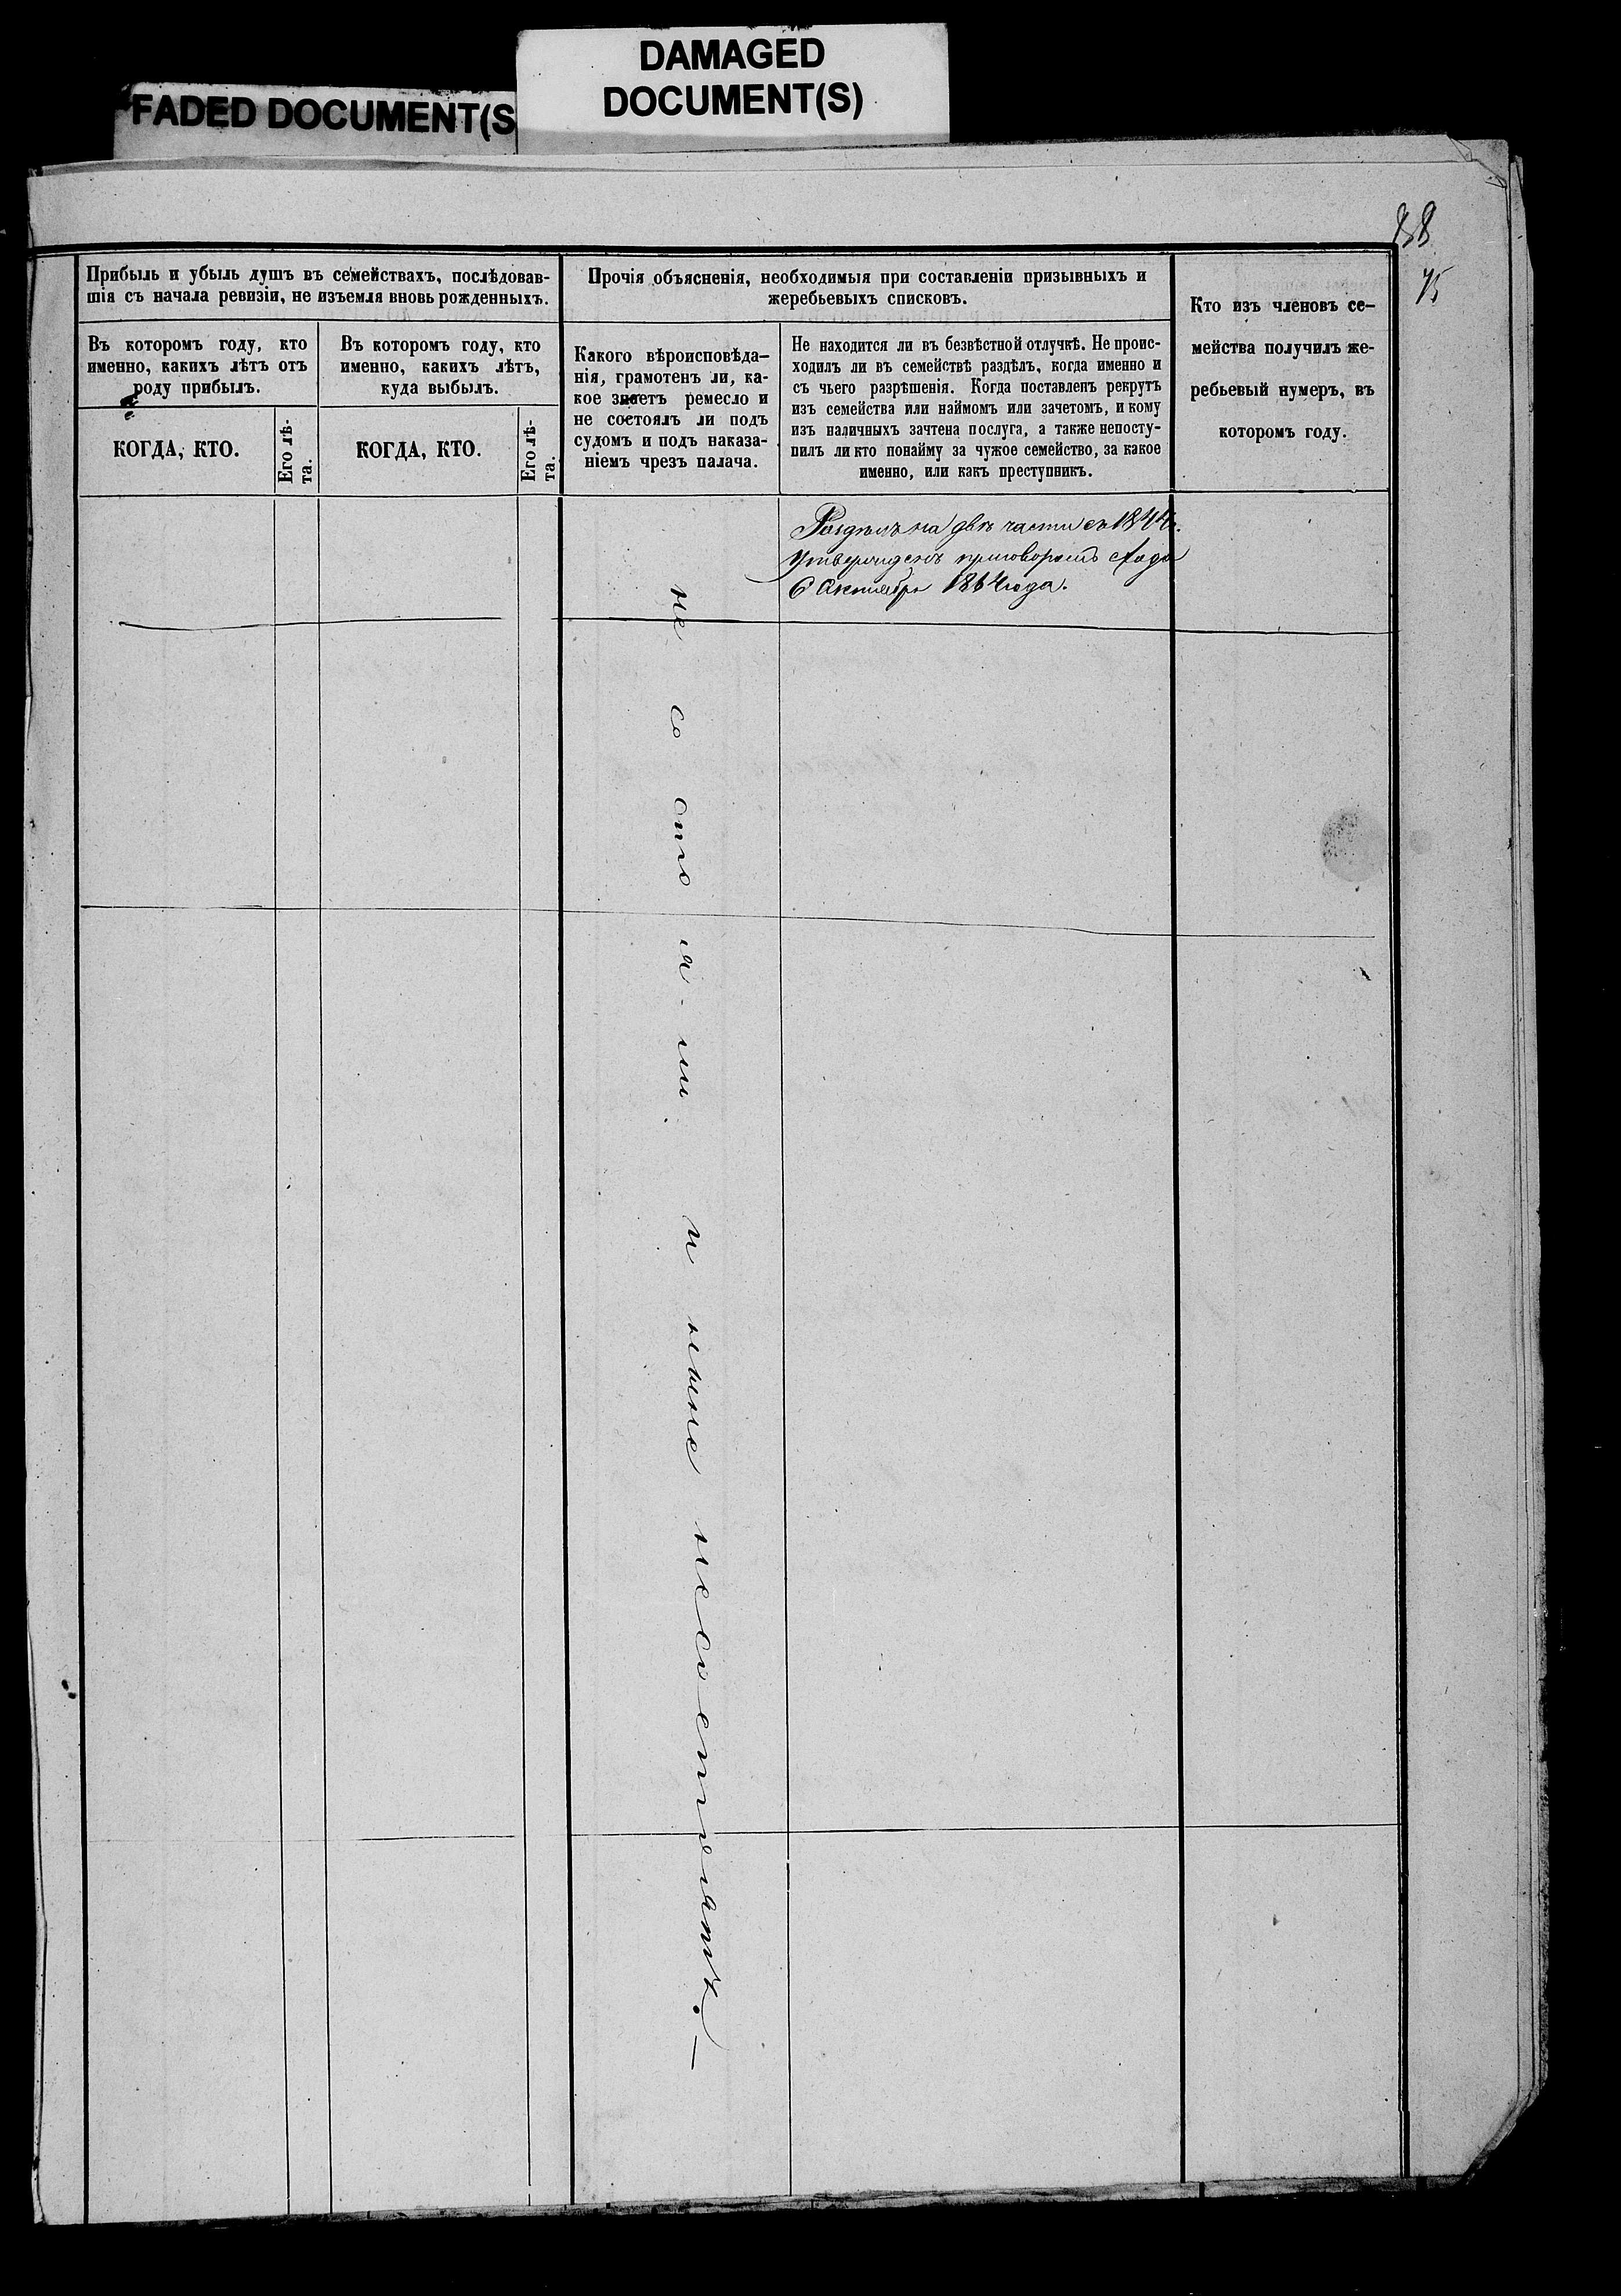 DAMAGED
DOCUMENT(S)
FADED DOCUMENT(S
Прибыль и убыль душъ въ семействахъ, послѣдовав-
шія съ начала ревизіи, не изъемля вновь рожденныхъ.
Въ которомъ году, кто
именно, какихъ лѣтъ отъ
роду прибылъ.
КОГДА, КТО.
Его лѣ-
та.
Въ которомъ году, кто
именно, какихъ лѣтъ,
куда выбылъ.
КОГДА, КТО.
Его лѣ-
та.
Прочія объясненія, необходимыя при составленіи призывныхъ и
жеребьевыхъ списковъ.
Какого вѣроисповѣда-
нія, грамотенъ ли, ка-
кое знаетъ ремесло и
не состоялъ ли подъ
судомъ и подъ наказа-
ніемъ чрезъ палача.
Не находится ли въ безвѣстной отлучкѣ. Не проис-
ходилъ ли въ семействѣ раздѣлъ, когда именно и
съ чьего разрѣшенія. Когда поставленъ рекрутъ
изъ семейства или наймомъ или зачетомъ, и кому
изъ наличныхъ зачтена послуга, а также непосту-
пилъ ли кто понайму за чужое семейство, за какое
именно, или какъ преступникъ.
Кто изъ членовъ се-
мейства получилъ же-
ребьевый нумеръ, въ
которомъ году.
Раздѣлъ на двѣ части съ
Утвержденъ приговоромъ схода
6 Октября 1864 года.
не состояли и ныне несостоятъ. —